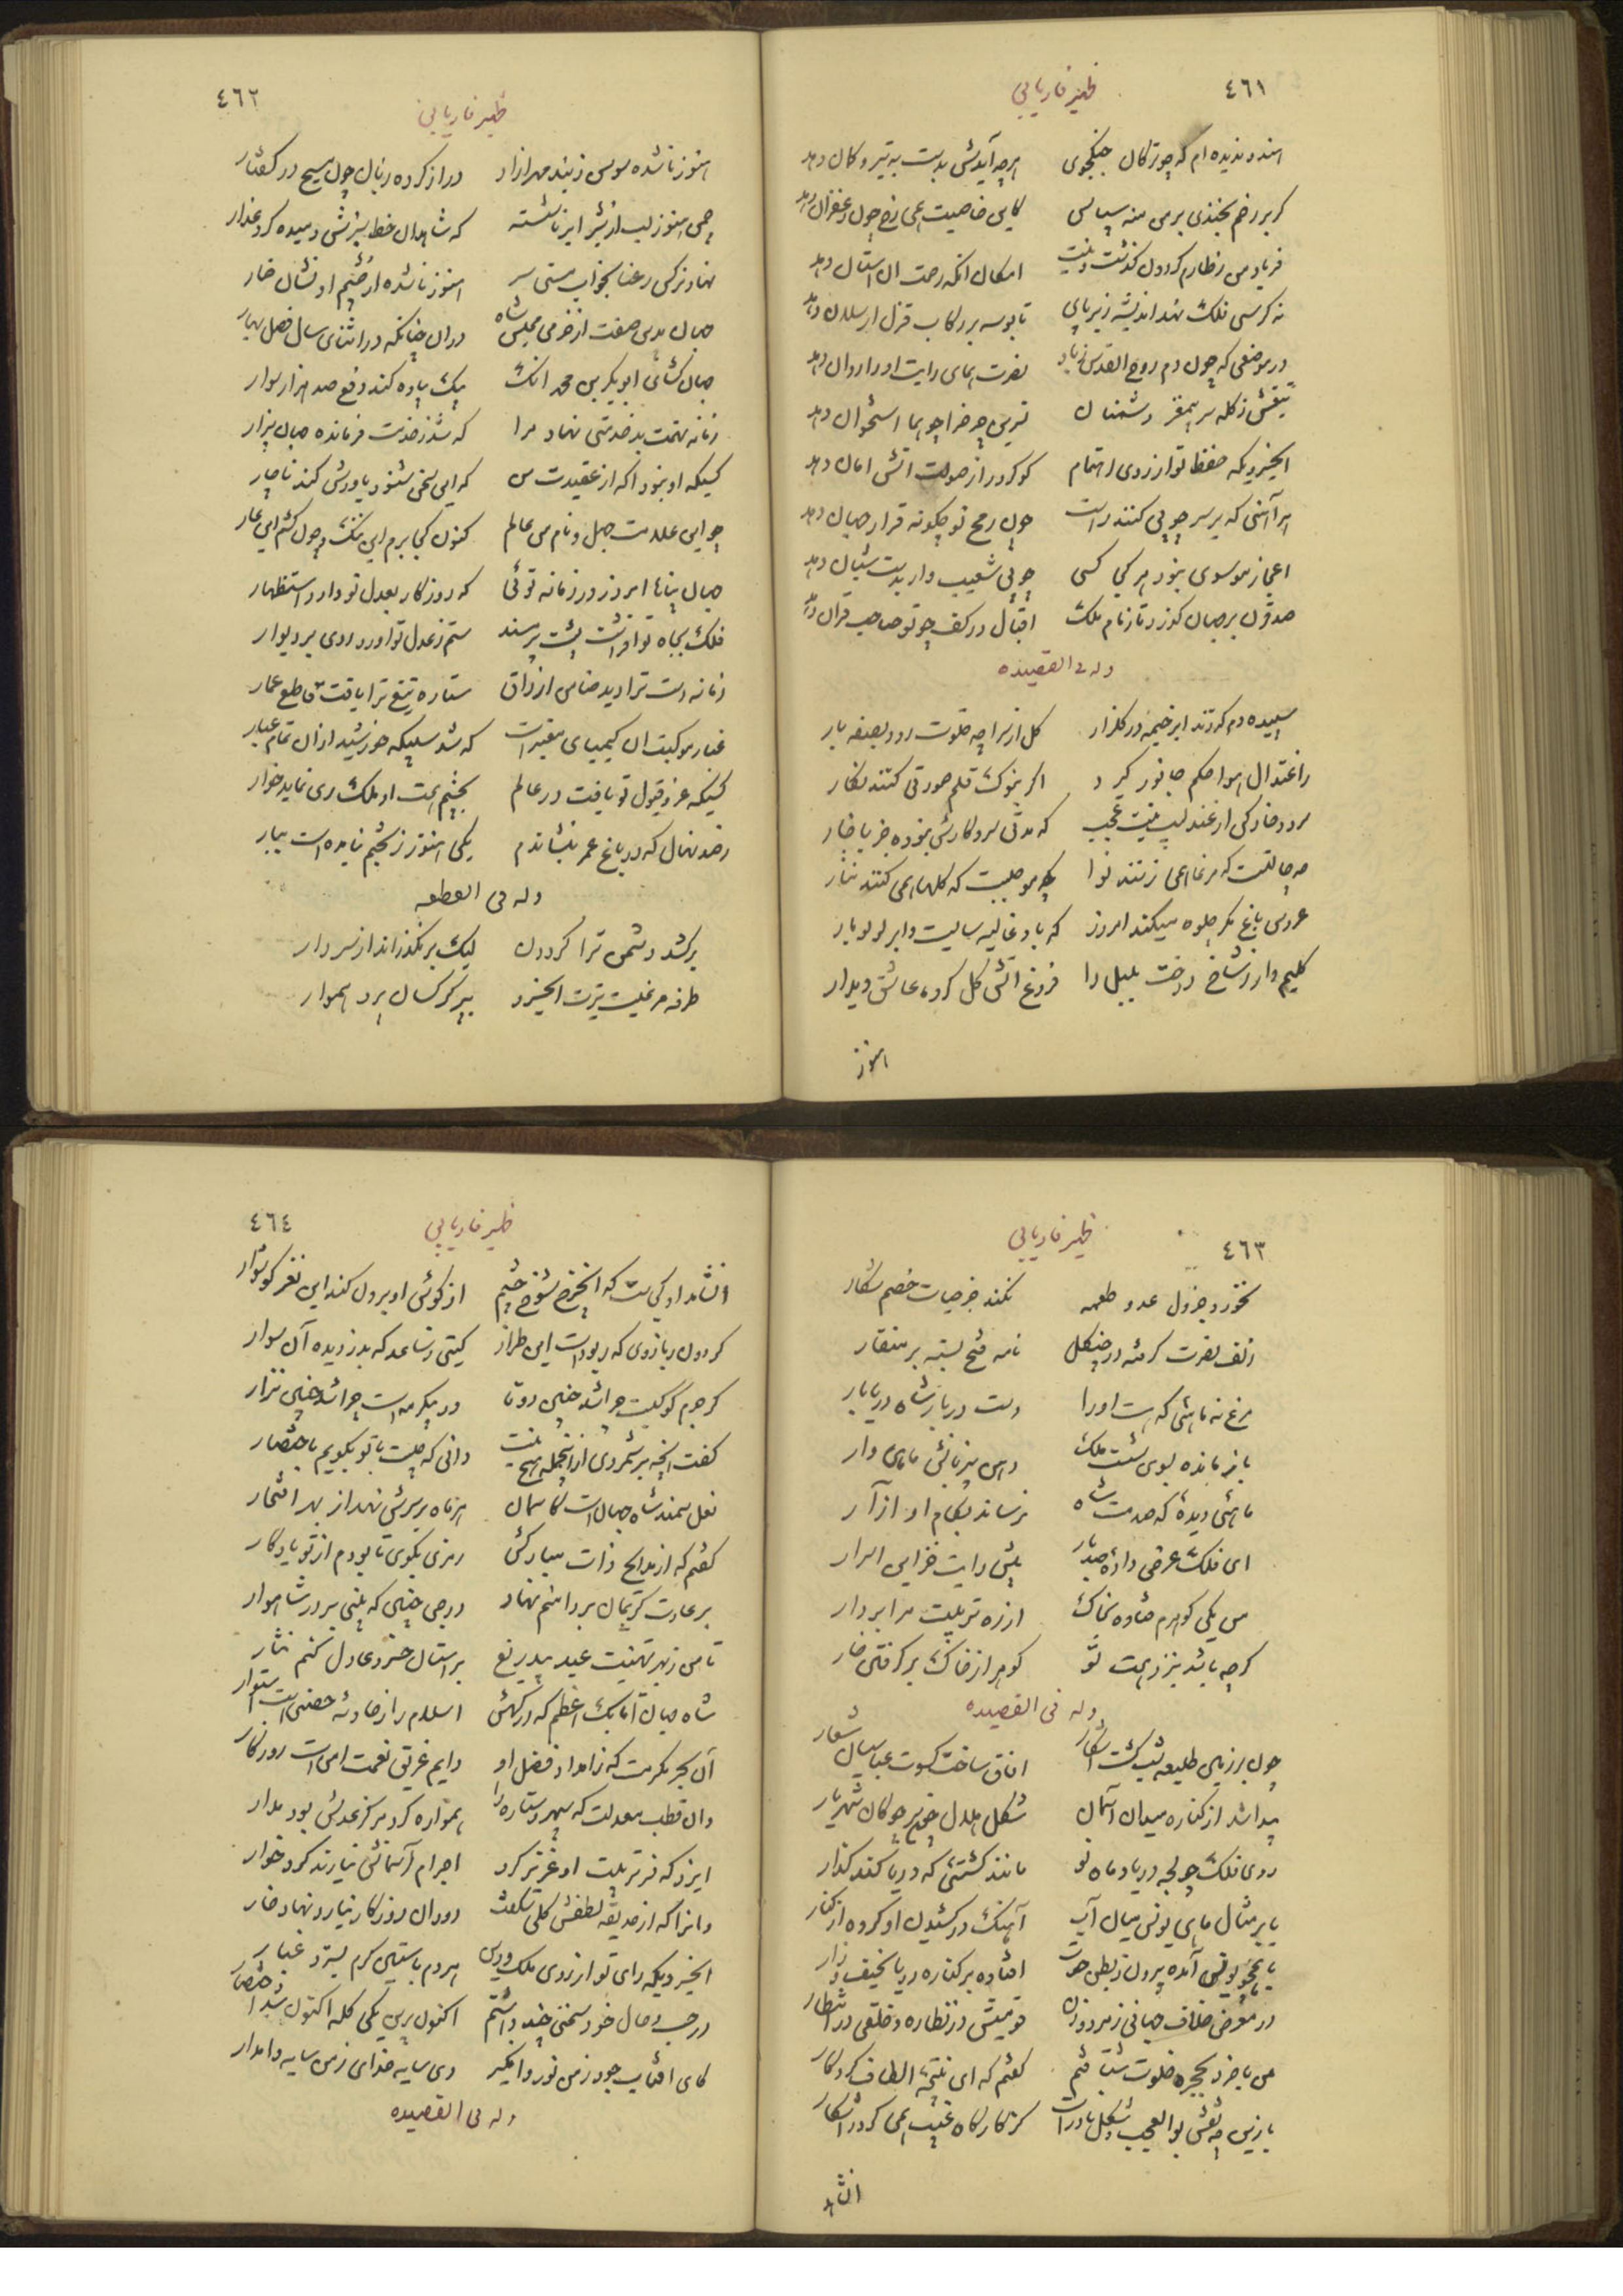 ٤٦١
ظهیر فاریابی
هندو ندیده‌ام که چو ترکان جنگجوی هر چه آیدش بدست به تیر و کمان دهد
گر بر رخم بخندی بر من منه سپاس کاین خاصیت همی رخ چون زعفران دهد
فریاد من ز طارم گردون گذشت و نیست امکان آنکه زحمت آن آستان دهد
نه کرسی فلک نهد اندیشه زیر پای تا بوسه بر رکاب قزل ارسلان دهد
در موضعی که چون دم روح القدس ز باد نصرت همای رایت او را روان دهد
تیغش ز کله سر بیمغز دشمنان نسرین چرخ را چو هما استخوان دهد
ای خسرویکه حفظ تو از روی اهتمام گوگرد را ز صولت آتش امان دهد
هر آهنی که بر سر چوبی کنند راست چون رمح تو چگونه قرار جهان دهد
اعجاز موسوی نبود هر کجا کسی چوبی شعیب وار بدست شبان دهد
صد قرن بر جهان گذرد تا زمام ملک اقبال در کف چو تو صاحب قران دهد
وله فی القصیده
سپیده دم که زند ابر خیمه در گلزار گل از سراچه خلوت رود بصفه بار
ز اعتدال هوا حکم جانور گیرد اگر بنوک قلم صورتی کنند نگار
سرود خارکن از عندلیب نیست عجب که مدتی سر و کارش نبوده جز با خار
چه حالتست که مرغان همی زنند نوا چه موجبست که گلها همی کنند نثار
عروس باغ مگر جلوه میکند امروز که باد غالیه سایست و ابر لولو بار
کلیم وار ز شاخ درخت بلبل را فروغ آتش گل کرد عاشق دیدار
هنوز
٤٦٢
ظهیر فاریابی
هنوز ناشده سوسن ز بند مهر آزاد دراز کرده زبان چون مسیح در گفتار
چمن هنوز لب از شیر ابر ناشسته که شاهدان خط سبزش دمیده گرد عذار
نهاد نرگس رعنا بخواب مستی سر هنوز ناشده از چشم او نشان خمار
جهان بدین صفت از خرمی مجلس شاه در آن چنانکه در اثنای سال فصل بهار
جهان گشای ابوبکر بن محمد آنک بیک پیاده کند دفع صد هزار سوار
زمانه تهمت بد خدمتی نهاد مرا که شد ز خدمت فرمانده جهان بیزار
کسیکه او نبود آگه از عقیدت من که این سخن شنود باورش کند ناچار
چو این علامت جهل و نام من عالم کنون کجا برم این ننگ و چون کشم این عار
جهان پناها امروز در زمانه توئی که روزگار بعدل تو دارد استظهار
فلک بجاه تو افراشت پشت بر مسند ستم ز عدل تو آورد روی بر دیوار
زمانه دست ترا دید ضامن ارزاق ستاره تیغ ترا یافت قاطع اعمار
غبار موکبت آن کیمیای معتبر است که شد سبیکه خورشید از آن تمام عیار
کسیکه عز قبول تو یافت در عالم بچشم همت او ملک ری نماید خوار
ز صد نهال که در باغ عمر بنشاندم یکی هنوز ز تخم نیامده است ببار
وله فی القطعه
برکشد دشمن ترا گردون لیک بر نگذراند از سر دار
طرفه مرغیست تیرت ای خسرو بپر کرکسان پرد هموار
٤٦٣
ظهیر فاریابی
نخورد جز دل عدو طعمه نکند جز حیات خصم شکار
زلف نصرت گرفته در چنگل نامه فتح بسته بر منقار
مرغ نه ماهئی که هست او را دست دربار شاه دریا بار
باز مانده بسوی شست ملک دهن بی زبانش ماهی وار
ماهئی دیدهٔ که خدمت شاه برساند بکام او از آر
ای فلک عرض دادهٔ صد بار پیش رایت خزاین اسرار
من یکی گوهرم فتاده بخاک از ره تربیت مرا بردار
گرچه باشد بنزد همت تو گوهر از خاک بر گرفتن خار
وله فی القصیده
چون بر زمین طلیعه شب گشت آشکار آفاق ساخت کسوت عباسیان شعار
پیدا شد از کناره میدان آسمان شکل هلال چون سر چوگان شهریار
روی فلک چو لجه دریا و ماه نو مانند کشتئی که ز دریا کند گذار
یا بر مثال ماهی یونس میان آب آهنگ در کشیدن او کرده از کنار
یا همچو یونس آمده بیرون ز بطن حوت افتاده بر کناره دریا نحیف و زار
در معرض خلاف جهانی ز مرد و زن قومیش در نظاره و خلقی در انتظار
من با خرد بحجره خلوت شتافتم گفتم که ای نتیجه الطاف کردگار
باز این چه نقش بوالعجب و شکل نادر است کز کارگاه غیب همی گردد آشکار
آن شاهد
٤٦٤
ظهیر فاریابی
آن شاهد از کجاست که این چرخ شوخ چشم از گوش او برون کند این نغز گوشوار
گردون ز بازوی که ربود است این طراز گیتی ز ساعد که بدزدیده آن سوار
گر جرم کوکبست چرا شد چنین دو تا ور پیکر مه است چرا شد چنین نزار
گفت آنچه بر شمردی از آنجمله هیچ نیست دانی که چیست با تو بگویم باختصار
نعل سمند شاه جهان است کاسمان هر ماه بر سرش نهد از بهر افتخار
گفتم که از مدایح ذات مبارکش رمزی بگوی تا بودم از تو یادگار
بر عادت کریمان بر دامنم نهاد درجی چنین که بینی پر در شاهوار
تا من ز بهر تهنیت عید بیدریغ بر آستان خسرو عادل کنم نثار
شاه جهان اتابک اعظم که درگهش اسلام را ز حادثه حصنی است استوار
آن بحر مکرمت که ز امداد فضل او دایم غریق نعمت امن است روزگار
وان قطب معدلت که سپهر و ستاره را همواره گرد مرکز عدلش بود مدار
ایزد که فر تربیت او عزیز کرد اجرام آسمانش نیارند کرد خوار
وانرا که از حدیقه لطفش گلی شکفت دوران روزگار نیارد نهاد خار
ای خسرویکه رای تو از روی ملک و دین هر دم بآستین کرم بسترد غبار
در حسب حال خود سخنی چند داشتم اکنون برین یکی کله اکنون شد اختصار
کای آفتاب جود ز من نور وا مگیر وی سایه خدای ز من سایه وا مدار
وله فی القصیده